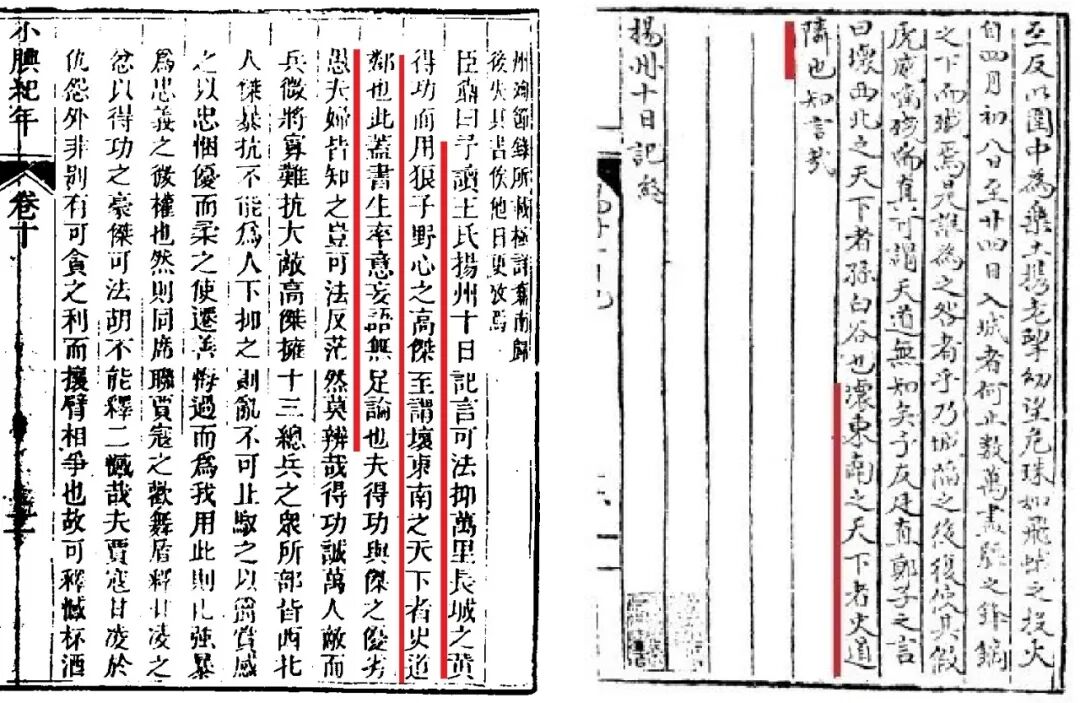 州殉節錄所載極詳鼒南歸
後失其書俟他日更攷焉
臣鼒曰予讀王氏揚州十日記言可法抑萬里長城之黃
得功而用狼子野心之高傑至謂壞東南之天下者史道
鄰也此蓋書生率意妄語無足論也夫得功與傑之優劣
愚夫婦皆知之豈可法反茫然莫辨哉得功誠萬人敵而
兵微將寡難抗大敵高傑擁十三總兵之衆所部皆西北
人傑暴抗不能爲人下抑之則亂不可止馭之以爵賞感
之以忠悃優而柔之使遷善悔過而爲我用此則化強暴
爲忠義之微權也然則同席聯賈寇之歡舞盾釋甘凌之
忿以得功之豪傑可法胡不能釋二憾哉夫賈寇甘凌於
仇怨外非别有可貪之利而攘臂相爭也故可釋憾杯酒
小腆紀年 卷十
至反以圍中為樂土揚老挈幼望危如飛蛾之投火
自四月初八日至廿四日入城者何止數萬盡驅之鋒鏑
之下而殲焉是誰為之咎者乎乃城陷之後復使其假
虎威殘喘真可謂天道無知矣予友廷直鄭子之言
曰壞西北之天下者孫白谷也壞東南之天下者史道
隣也知言哉
揚州十日記終